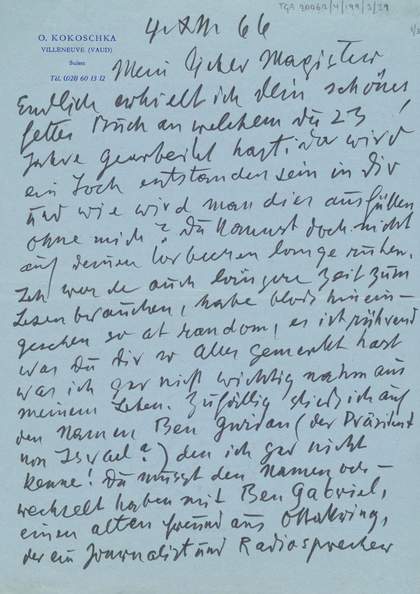 TGA 20062/4/199/3/29
1/2
O. KOKOSCHKA
VILLENEUVE (VAUD)
Suisse
Tél. (021) 60 13 12
4. XII 66
Mein lieber Magister
Endlich erhielt ich Dein schönes
fettes Buch an welchem du 23
Jahre gearbeitet hast; da wird
ein Loch entstanden sein in dir
und wie wird man dies ausfüllen
ohne mich? Du kannst doch nicht
auf deinen Lorbeeren lange ruhen.
Ich werde auch längere Zeit zum
Lesen brauchen, habe bloss hinein-
gesehen so at random, es ist rührend
was Du Dir so alles gemerkt hast
was ich gar nicht wichtig nahm aus
meinem Leben. Zufällig stiess ich auf
den Namen Ben Gurion (der Präsident
von Israel?) den ich gar nicht
kenne! Du musst den Namen ver-
wechselt haben mit Ben Gabriel,
einen alten Freund aus Ottakring,
der ein Journalist und Radiosprecher